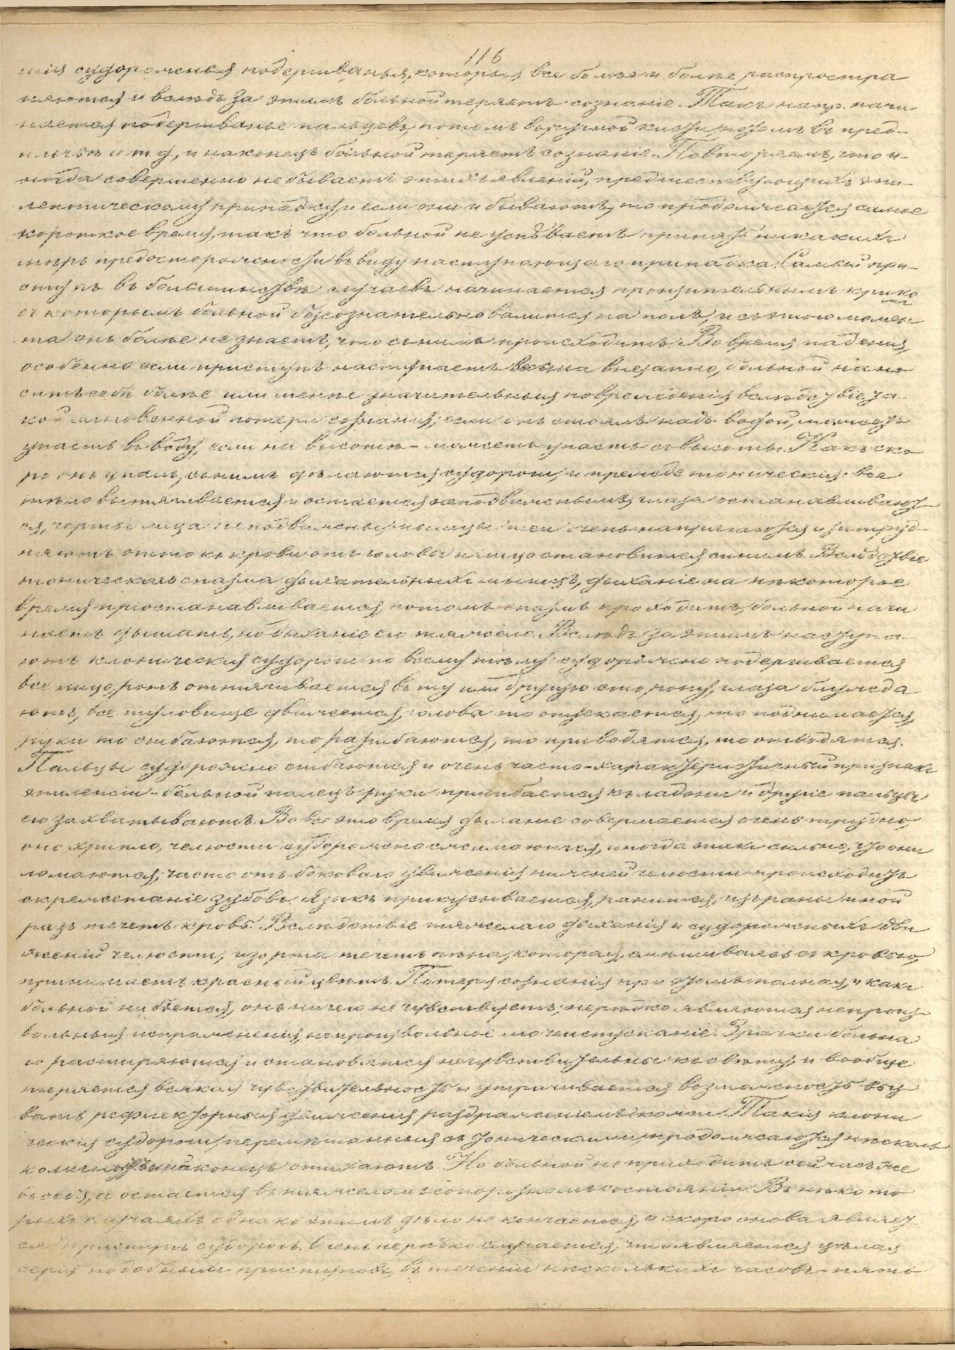 116
шія судорожныя подергиванья, которыя все болѣе и болѣе распростра
няются и вслѣдъ за этимъ больной теряетъ сознаніе. Такъ напр. начи-
нается подергиванье пальцевъ, потомъ въ ручной кисти, потомъ въ пред-
плечьѣ и т д, и наконецъ больной теряетъ сознаніе. Повторяемъ, что и-
ногда совершенно не бываетъ этихъ явленій, предшествующихъ эпи-
лептическому припадку, и если они и бываютъ, то продолжаются самое
короткое время, такъ что больной не успѣваетъ принять никакихъ
мѣръ предосторожности въ виду наступающаго припадка. Самый при-
ступъ въ большинствѣ случаевъ начинается пронзительнымъ крико
съ которымъ больной безсознательно валится на полъ, и съ этого момен
та онъ болѣе не знаетъ, что съ нимъ происходитъ. Во время паденія,
особенно если приступъ наступаетъ весьма внезапно, больной нано
ситъ себѣ болѣе или менѣе значительныя поврежденія вслѣдствіе та-
кой мгновенной потери сознанія; если онъ стоялъ надъ водой, можетъ
упасть въ воду, если на высотѣ - можетъ упасть съ высоты. Какъ ско
ро онъ упалъ, съ нимъ дѣлаются судороги, и прежде тоническія: все
тѣло вытягивается и остается неподвижнымъ, глаза останавливают
ся, черты лица неподвижны, мышцы шеи очень напрягаются и затруд-
няютъ оттокъ крови отъ головы и лицо становится синимъ. Вслѣдствіе
тоническаго спазма дыхательныхъ мышцъ, дыханіе на нѣкоторое
время пріостанавливается, потомъ спазмъ проходитъ, больной начи
наетъ дышать, но дыханіе его тяжело. Вслѣдъ за этимъ наступа-
ютъ клоническія судороги по всему тѣлу: судорожно подергивается
все лицо, ротъ оттягивается въ ту или другую сторону, глаза блужда
ютъ, все туловище движется, голова то опускается, то поднимается,
руки то сгибаются, то разгибаются, то приводятся, то отводятся.
Пальцы судорожно сгибаются и очень часто - характеристичный признакъ
эпилепсіи - большой палецъ руки пригибается къ ладони и другіе пальцы
его захватываютъ. Во все это время дыханіе совершается очень трудно,
оно хрипло, челюсти судорожно сжимаются, иногда такъ сильно, что они
ломаются; часто отъ боковаго движенія нижней челюсти происходитъ
скрежетаніе зубовъ. Языкъ прикусывается, ранится, изъ раны иной
разъ течетъ кровь. Вслѣдствіе тяжелаго дыханія и судорожныхъ дви
женій челюсти, изо рта течетъ пѣна, которая, смѣшиваясь съ кровью,
принимаетъ красный цвѣтъ. Потеря сознанія при этомъ полная, и какъ
больной ни бьется, онъ ничего не чувствуетъ; нерѣдко являются непроиз
вольныя испражненія, непроизвольное мочеиспусканіе. Зрачки больна
го расширяются и становятся нечувствительны къ свѣту, и вообще
теряется всякая чувствительность и утрачивается возможность выз
вать рефлекторныя движенія раздраженіемъ кожи. Такія клони
ческія судороги, перемѣшанныя съ тоническими, продолжаются нѣсколь
ко минутъ и наконецъ стихаютъ. Но больной не приходитъ сейчасъ же
въ себя, а остается въ тяжеломъ сопорозномъ состояніи. Въ нѣкото
рыхъ случаяхъ однако этимъ дѣло не кончается, и скоро снова являет
ся приступъ судорогъ. Очень нерѣдко случается, что является цѣлая
серія подобныхъ приступовъ, въ теченіи нѣсколькихъ часовъ - пять-